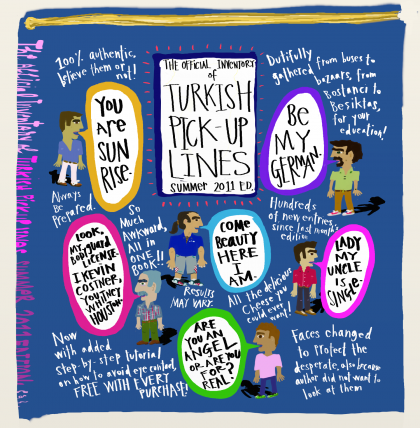 100% authentic,
believe them or
not!
THE OFFICIAL INVENTORY
of
TURKISH
PICK-UP
LINES
SUMMER 2011 ED.
Dutifully
gathered from buses to
bazaars, from
Bostancı to
Beşiktaş,
for your
education!
YOU
ARE
SUN
RISE.
BE
MY
GERMAN.
Always
Be
Prepared.
So
Much
Awkward,
All in
ONE
BOOK!!
Hundreds
of new entries
since last month's
edition
LOOK,
MY
BODYGUARD
LICENSE.
I KEVIN
COSTNER,
YOU
WHITNEY
HOUSTON.
COME
BEAUTY
HERE
I
AM.
LADY
MY
UNCLE
IS
SINGLE.
RESULTS
MAY VARY.
All the delicious
Cheese you
could ever
want!
ARE
YOU AN
ANGEL
OR ARE YOU
FOR?
REAL?
Now
with added
step-by-step tutorial
on how to avoid eye contact,
FREE WITH EVERY
PURCHASE!
Faces changed
to protect the
desperate, also because
author did not want to
look at them